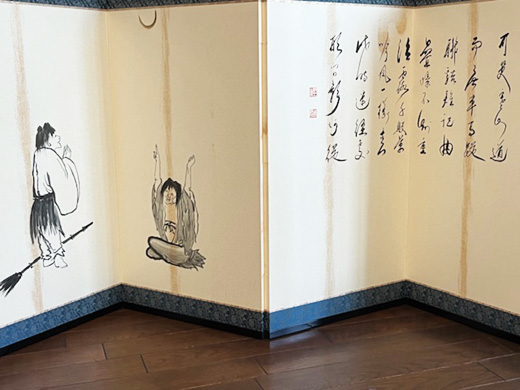 可笑寒山道
而無車馬蹤
聯谿難記曲
疊嶂不重
泣露千般草
吟風一様松
此時迷徑處
形問影何從